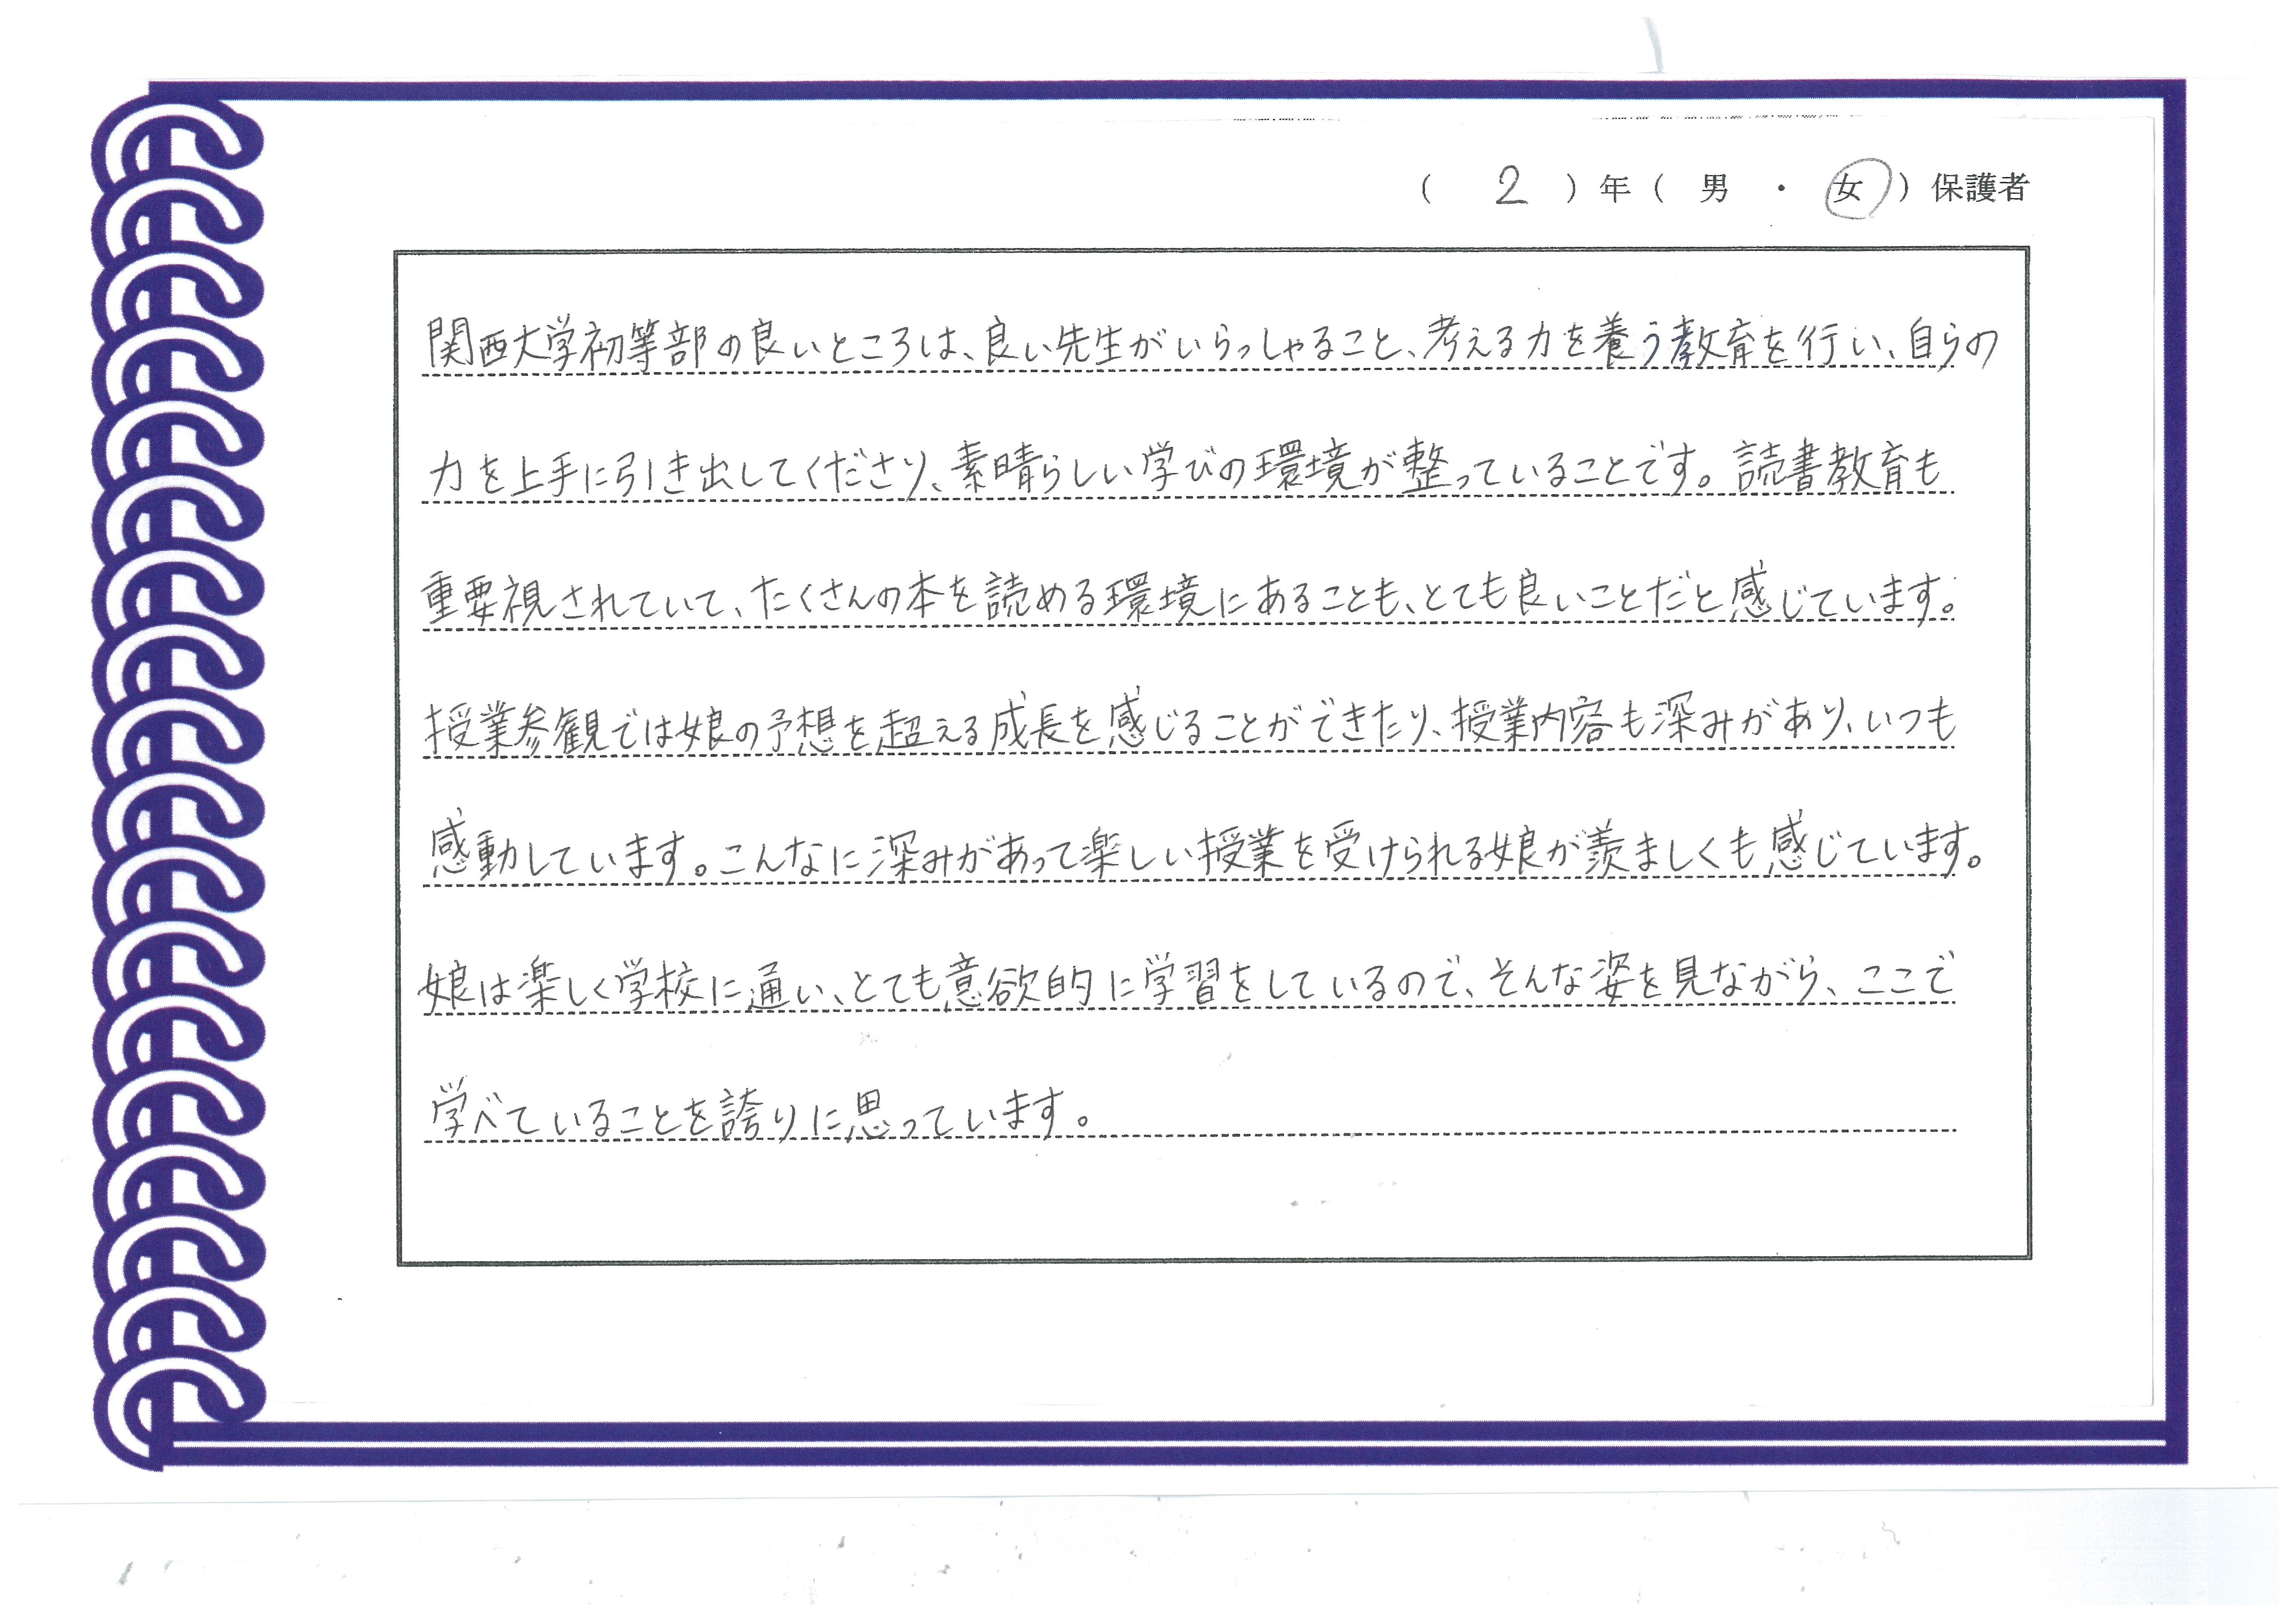 ( 2 ) 年 ( 男 ・ 女 ) 保護者
関西大学初等部の良いところは、良い先生がいらっしゃること、考える力を養う教育を行い、自らの
力を上手に引き出してくださり、素晴らしい学びの環境が整っていることです。読書教育も
重要視されていて、たくさんの本を読める環境にあることも、とても良いことだと感じています。
授業参観では娘の予想を超える成長を感じることができたり、授業内容も深みがあり、いつも
感動しています。こんなに深みがあって楽しい授業を受けられる娘が羨ましくも感じています。
娘は楽しく学校に通い、とても意欲的に学習をしているので、そんな姿を見ながら、ここで
学べていることを誇りに思っています。